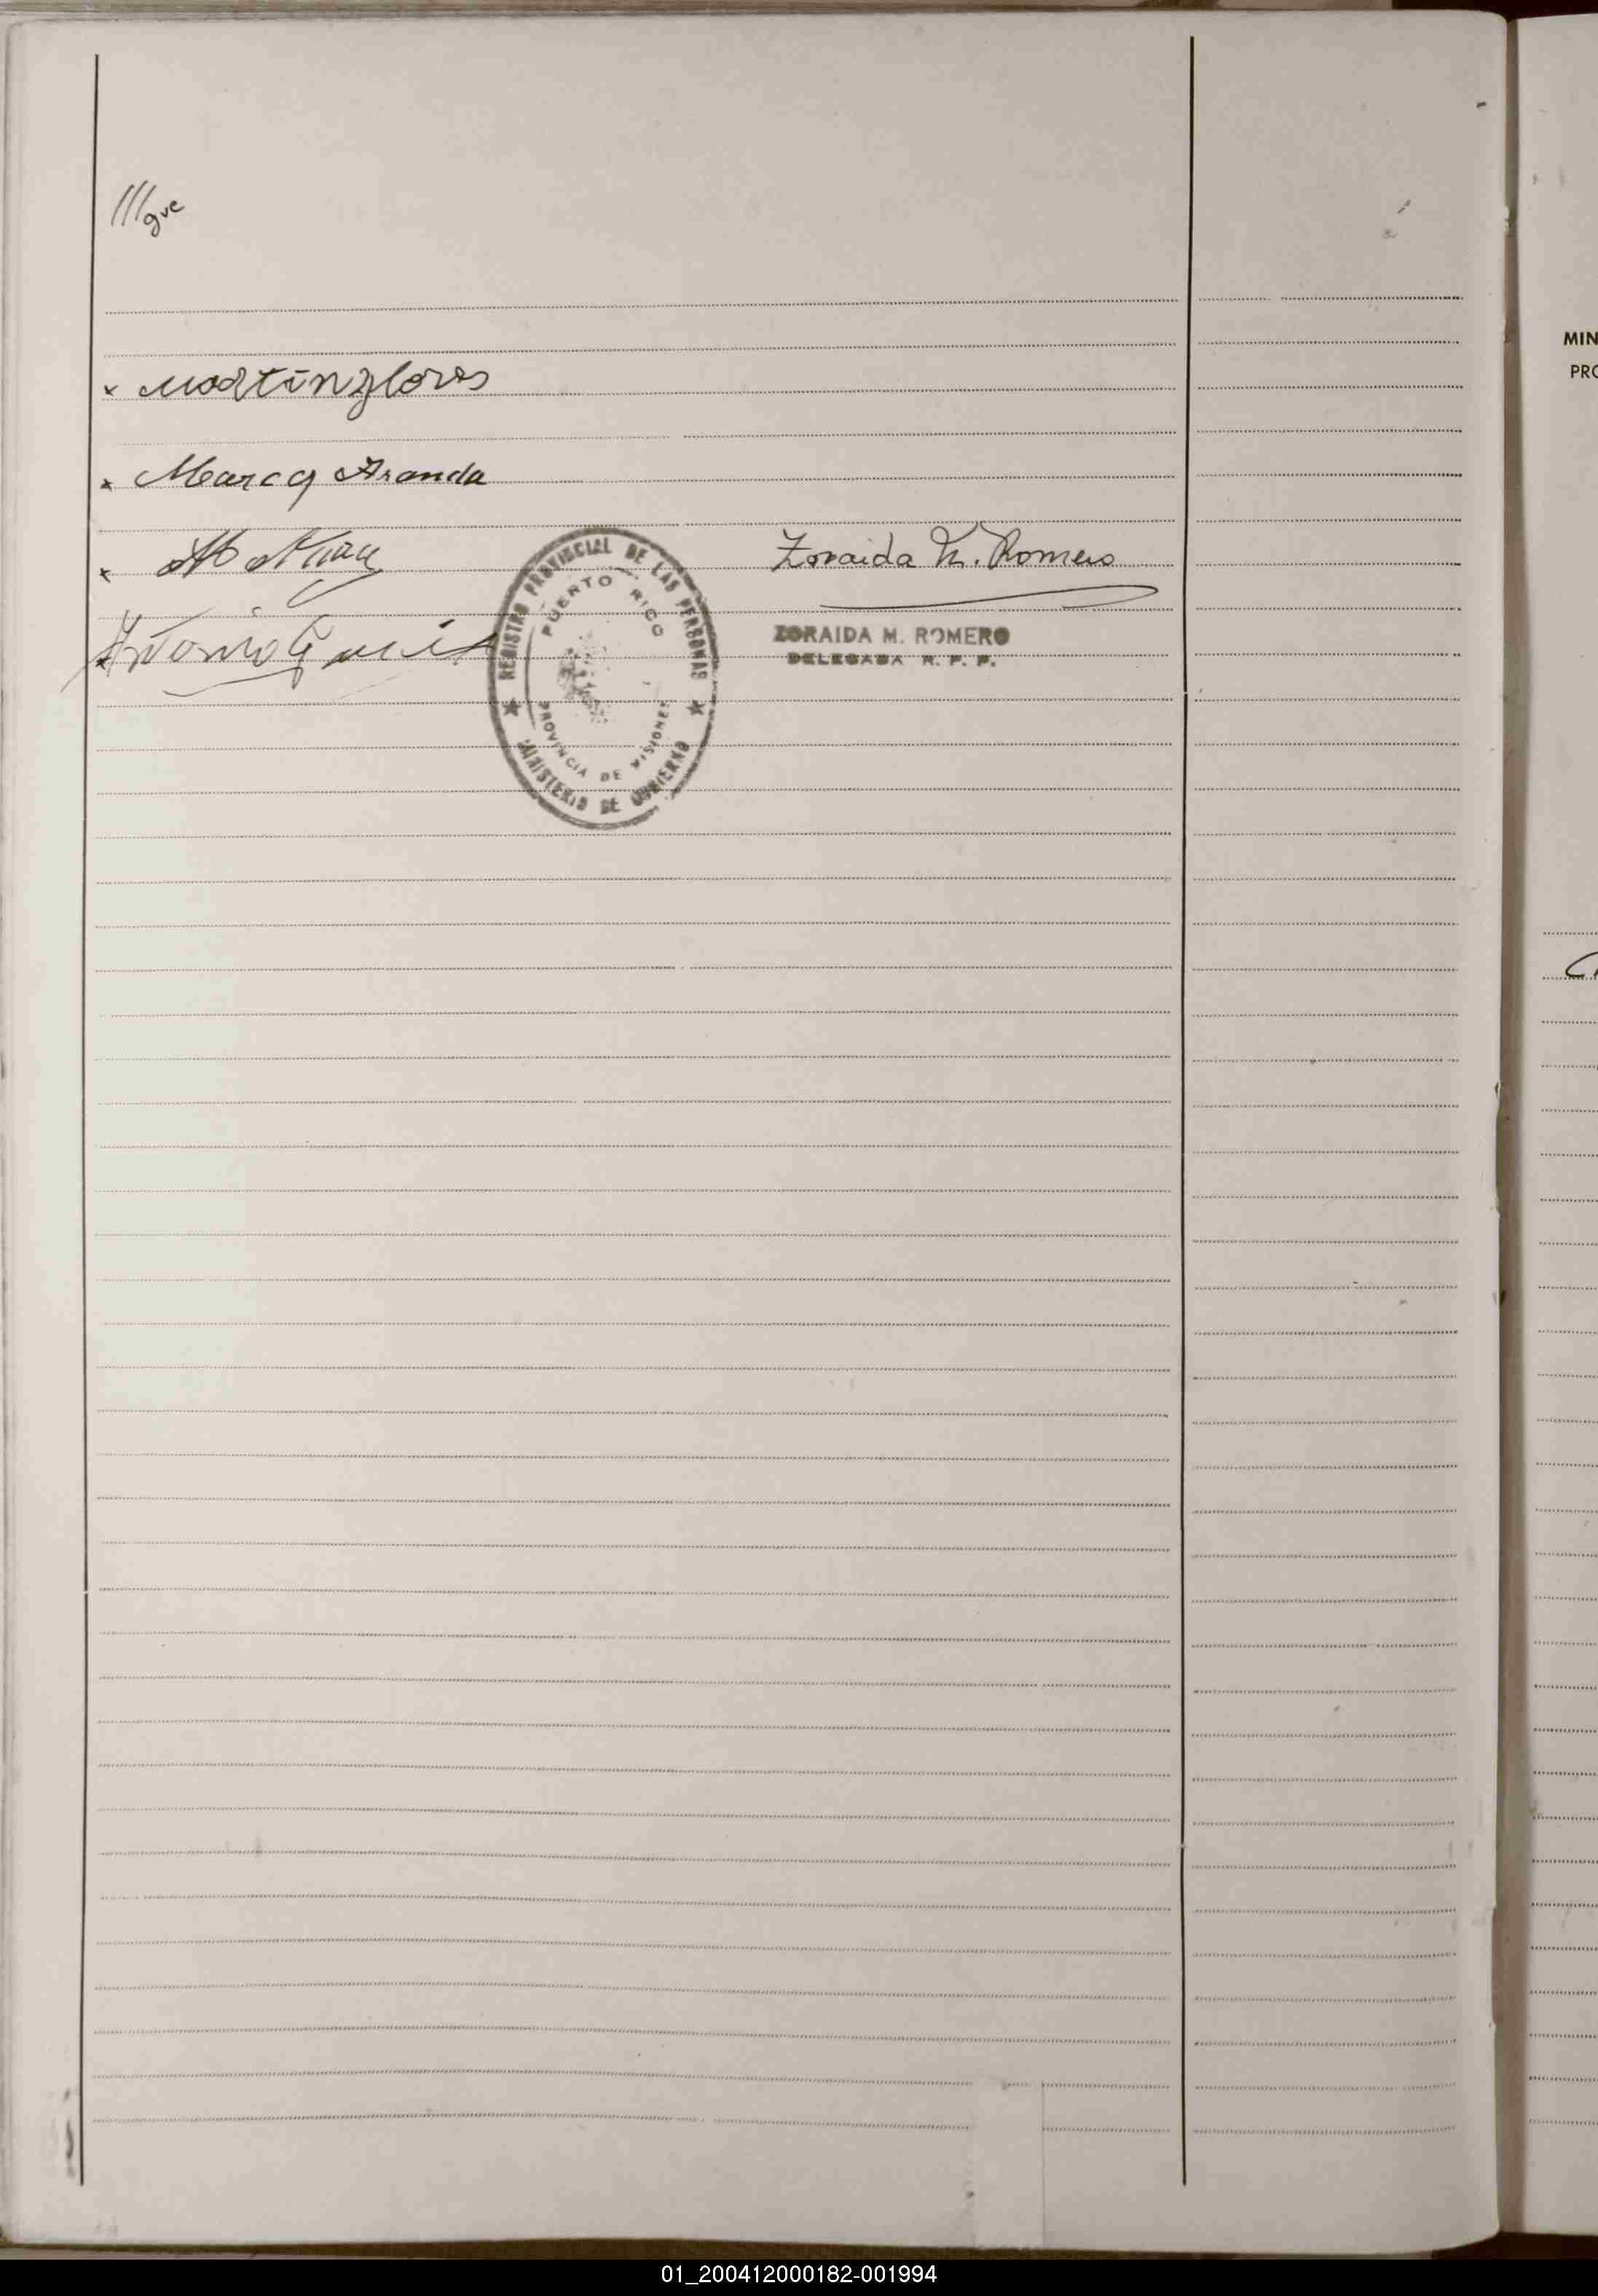 ///gue
x Martin flores
x Marcq Aranda
x
Antonio
Zoraida M. Romero
ZORAIDA M. ROMERO
DELEGADA R. P. P.
REGISTRO PROVINCIAL DE LAS PERSONAS
PUERTO RICO
PROVINCIA DE MISIONES
MINISTERIO DE GOBIERNO
MIN
PRO
01_200412000182-001994